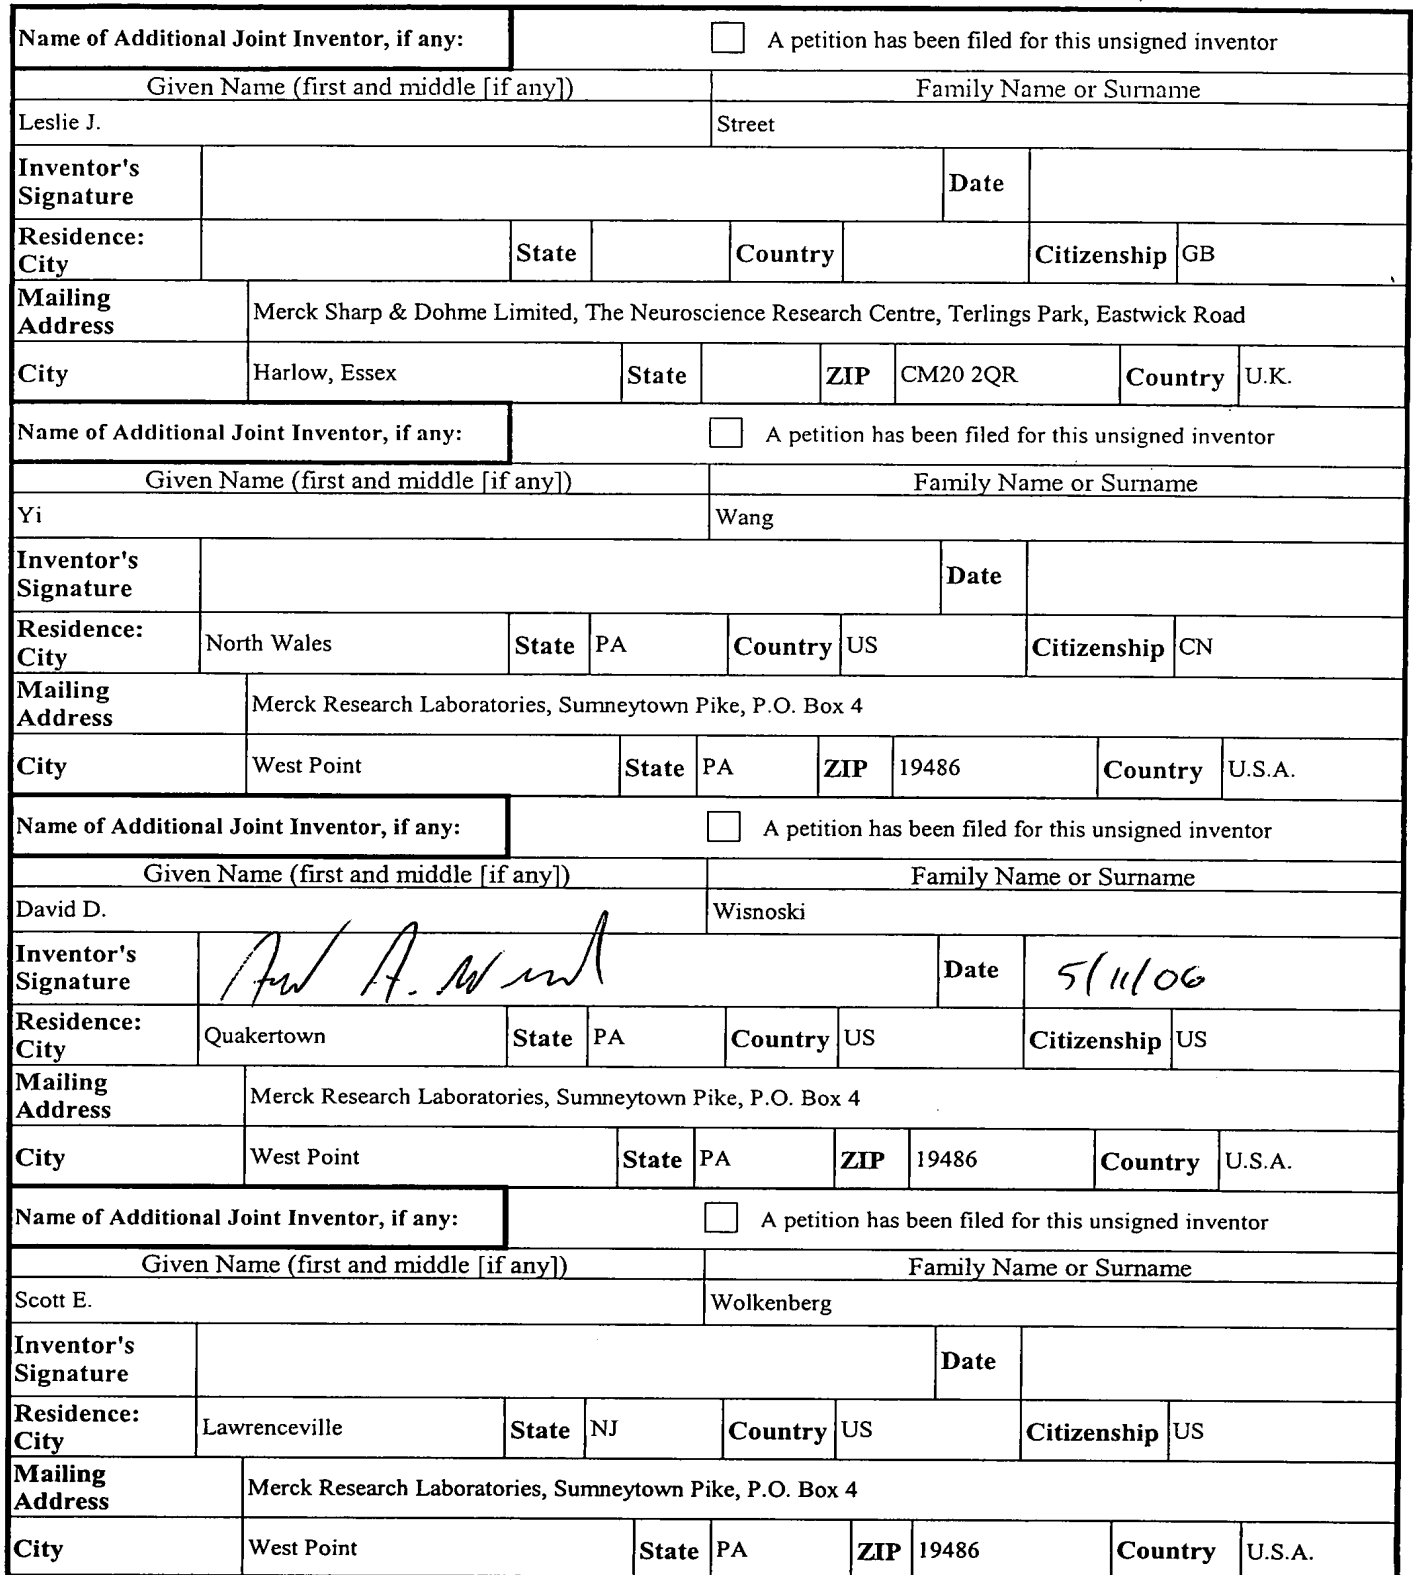 Name of Additional Joint Inventor, if any: A petition has been filed for this unsigned inventor
Given Name (first and middle [if any]) Family Name or Surname
Leslie J. Street
Inventor's Signature Date
Residence: City State Country Citizenship GB
Mailing Address Merck Sharp & Dohme Limited, The Neuroscience Research Centre, Terlings Park, Eastwick Road
City Harlow, Essex State ZIP CM20 2QR Country U.K.
Name of Additional Joint Inventor, if any: A petition has been filed for this unsigned inventor
Given Name (first and middle [if any]) Family Name or Surname
Yi Wang
Inventor's Signature Date
Residence: City North Wales State PA Country US Citizenship CN
Mailing Address Merck Research Laboratories, Sumneytown Pike, P.O. Box 4
City West Point State PA ZIP 19486 Country U.S.A.
Name of Additional Joint Inventor, if any: A petition has been filed for this unsigned inventor
Given Name (first and middle [if any]) Family Name or Surname
David D. Wisnoski
Inventor's Signature Date 5/11/06
Residence: City Quakertown State PA Country US Citizenship US
Mailing Address Merck Research Laboratories, Sumneytown Pike, P.O. Box 4
City West Point State PA ZIP 19486 Country U.S.A.
Name of Additional Joint Inventor, if any: A petition has been filed for this unsigned inventor
Given Name (first and middle [if any]) Family Name or Surname
Scott E. Wolkenberg
Inventor's Signature Date
Residence: City Lawrenceville State NJ Country US Citizenship US
Mailing Address Merck Research Laboratories, Sumneytown Pike, P.O. Box 4
City West Point State PA ZIP 19486 Country U.S.A.